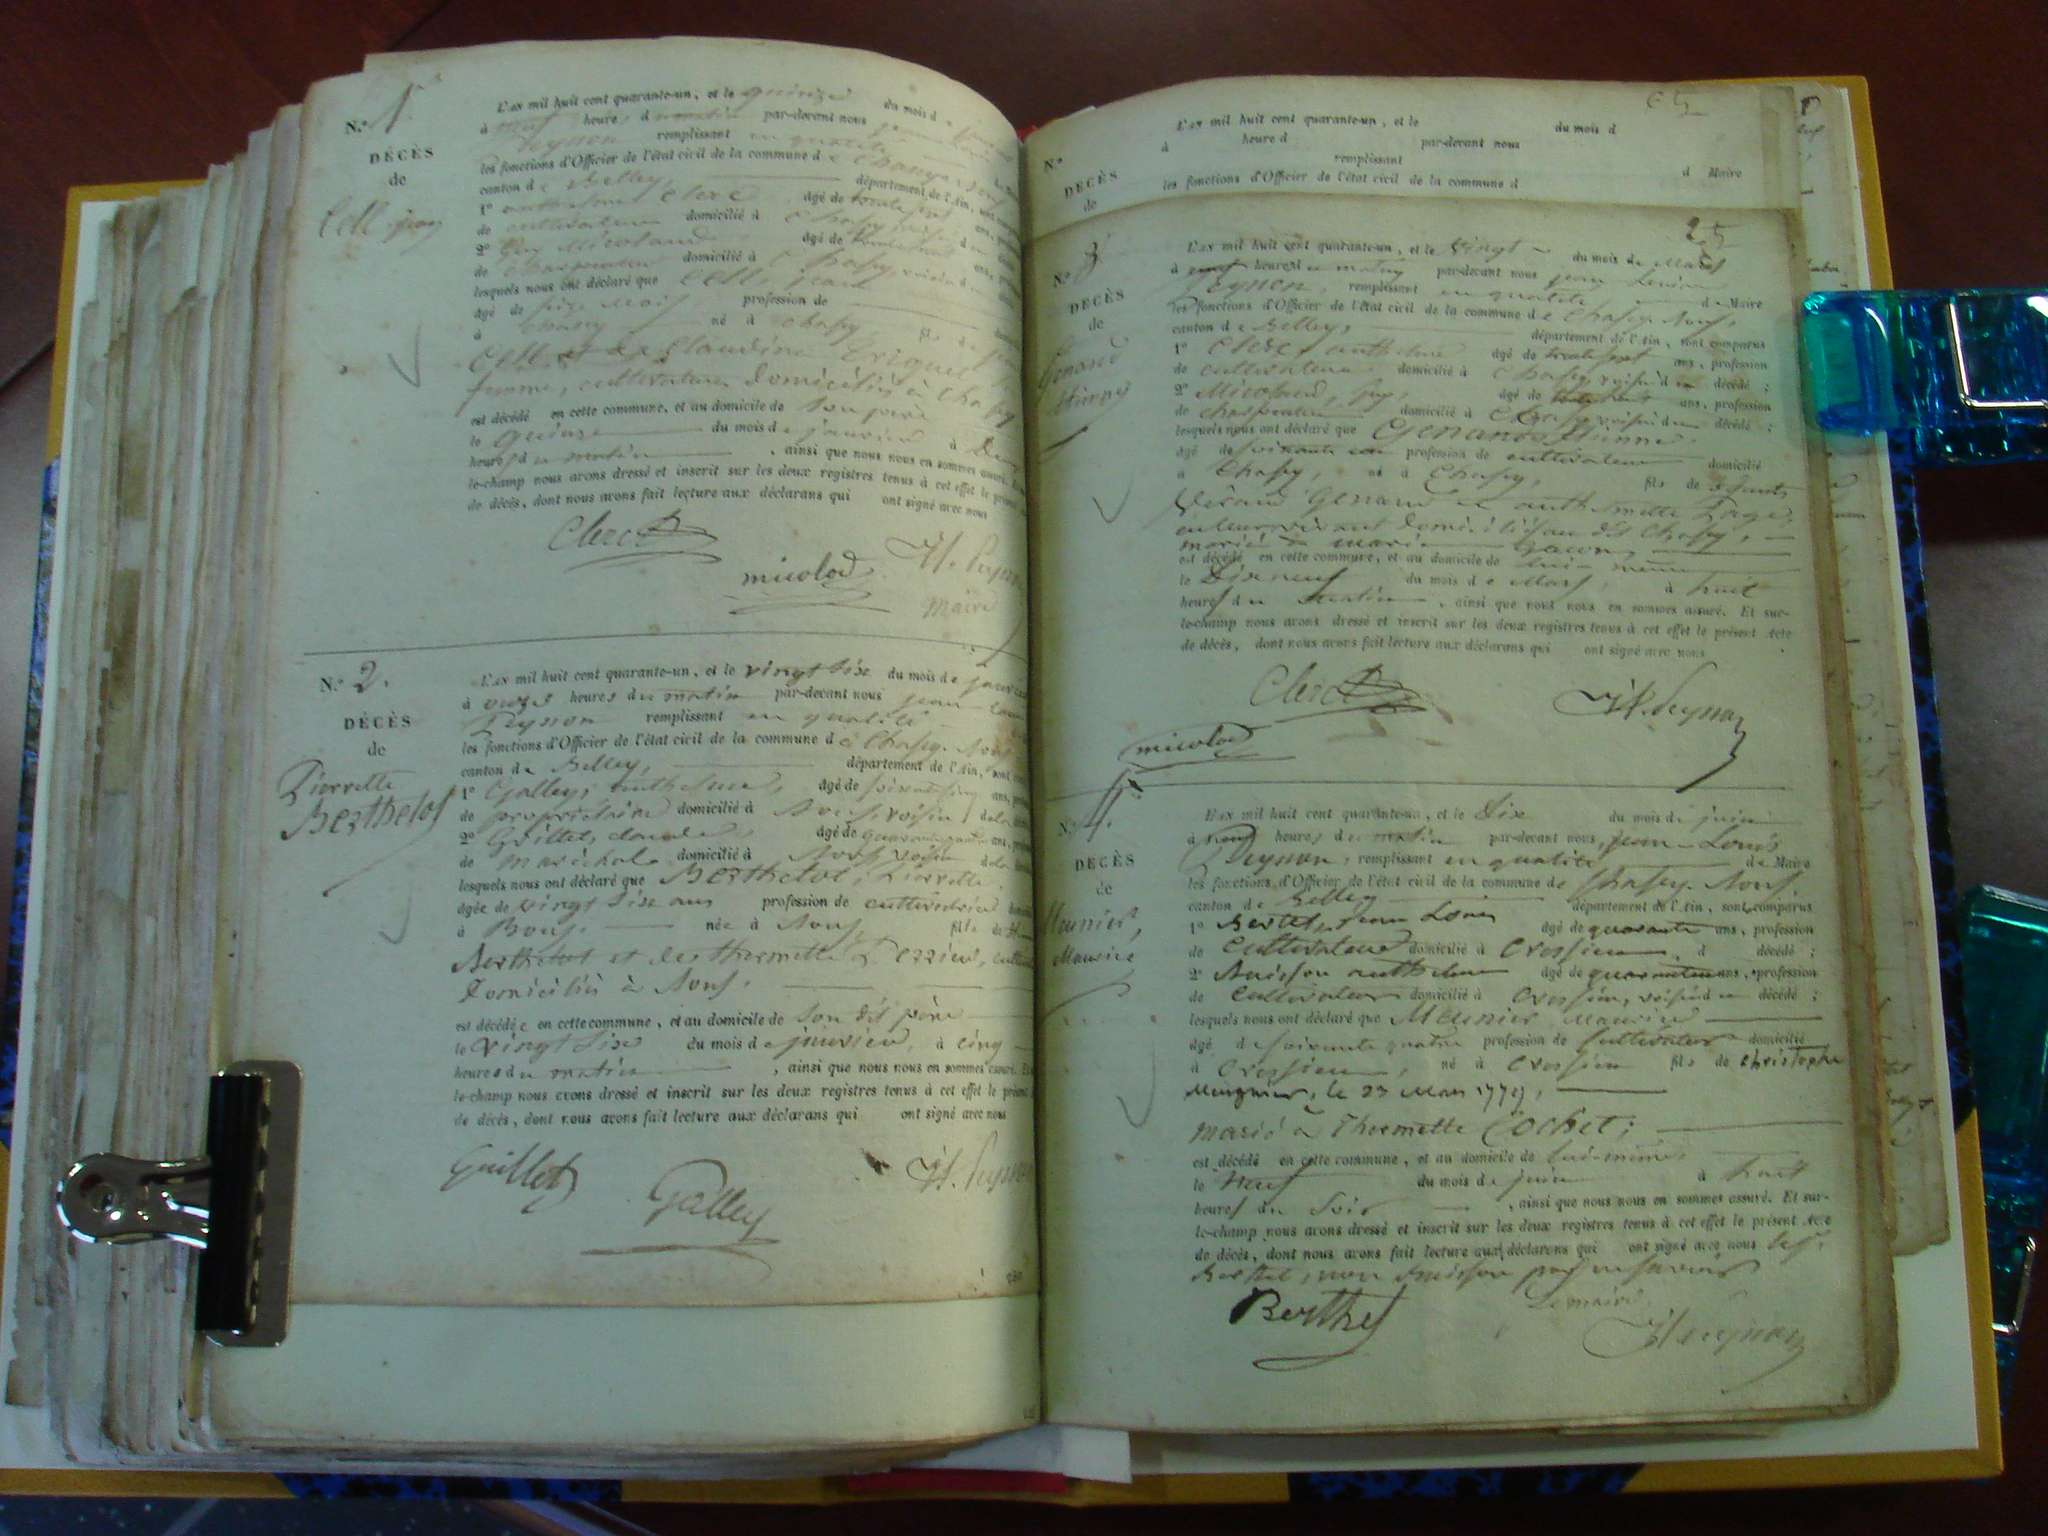 N.º 1.
DÉCÈS
de
Cell jean
L'an mil huit cent quarante-un, et le quinze du mois de
à neuf heures du matin par-devant nous jean
Peynon remplissant en qualité
les fonctions d'Officier de l'état civil de la commune de
canton de Belley, département de l'Ain, sont
1º anthelme Clerc agé de
de cultivateur domicilié à Chasey
2º Guy Micoland agé de
de charpentier domicilié à Chasey voisin
lesquels nous ont déclaré que Cell, jean
agé de mois profession de
à Chasey né à Chasey fils de
Cell et de Claudine
femme, cultivateurs domiciliés à Chasey
est décédé en cette commune, et au domicile de son père
le quinze du mois de janvier à
heures du matin, ainsi que nous nous en sommes assuré. Et
le-champ nous avons dressé et inscrit sur les deux registres tenus à cet effet le présent
de décès, dont nous avons fait lecture aux déclarans qui ont signé avec nous
Clerc
micolod JL. Peynon
Maire
N.º 2.
DÉCÈS
de
Pierrette
Berthelot
L'an mil huit cent quarante-un, et le vingt six du mois de janvier
à onze heures du matin par-devant nous jean-Louis
Peynon remplissant en qualité
les fonctions d'Officier de l'état civil de la commune de Chasey-
canton de Belley, département de l'Ain, sont
1º Galley, anthelme, agé de ans,
de proprietaire domicilié à voisin de la
2º Guillet, claude, agé de ans,
de Maréchal domicilié à voisin de la
lesquels nous ont déclaré que Berthelot, Pierrette.
agée de vingt six ans profession de cultivatrice
à née à fille de
Berthelot et de thermette
Domiciliés à
est décédée en cette commune, et au domicile de son dit père
le vingt six du mois de janvier, à cinq
heures du matin, ainsi que nous nous en sommes assuré. Et
le-champ nous avons dressé et inscrit sur les deux registres tenus à cet effet le présent
de décès, dont nous avons fait lecture aux déclarans qui ont signé avec nous
Guillet JL. Peynon
Galley
65
N.º
DÉCÈS
de
L'an mil huit cent quarante-un, et le du mois d
à heure d par-devant nous
remplissant d Maire
les fonctions d'Officier de l'état civil de la commune d
25
N.º 3
DÉCÈS
de
Genand
L'an mil huit cent quarante-un, et le vingt du mois de Mars
à heures du matin par-devant nous jean Louis
Peynon, remplissant en qualité de Maire
les fonctions d'Officier de l'état civil de la commune de Chasey-
canton de Belley, département de l'Ain, sont comparus
1º Clerc, anthelme agé de trente sept ans, profession
de cultivateur domicilié à Chasey voisin du décédé;
2º Micoland, Guy, agé de ans, profession
de charpentier domicilié à Chasey voisin du décédé;
lesquels nous ont déclaré que Genand Etienne.
agé de soixante profession de cultivateur domicilié
à Chasey, né à Chasey, fils de
Genand et anthelmette
domiciliés au dit Chasey,
marié à marie
est décédé en cette commune, et au domicile de lui-même
le Dix neuf du mois de Mars, à huit
heures du matin, ainsi que nous nous en sommes assuré. Et sur-
le-champ nous avons dressé et inscrit sur les deux registres tenus à cet effet le présent Acte
de décès, dont nous avons fait lecture aux déclarans qui ont signé avec nous
Clerc JL. Peynon
micolod
N.º 4.
DÉCÈS
de
Meunier,
Maurice
L'an mil huit cent quarante-un, et le Dix du mois de juin
à heures du matin par-devant nous, jean-Louis
Peynon, remplissant en qualité de Maire
les fonctions d'Officier de l'état civil de la commune de Chasey-
canton de Belley département de l'Ain, sont comparus
1º Berthet, jean Louis agé de quarante ans, profession
de cultivateur domicilié à Crossieu, d décédé;
2º Buisson anthelme agé de ans, profession
de cultivateur domicilié à Crossieu, voisin du décédé;
lesquels nous ont déclaré que Meunier Maurice
agé de soixante quatre profession de cultivateur domicilié
à Crossieu, né à Crossieu fils de christophe
le 23 Mars
marié à Thermette Cochet;
est décédé en cette commune, et au domicile de lui-même,
le neuf du mois de juin à huit
heures du soir, ainsi que nous nous en sommes assuré. Et sur-
le-champ nous avons dressé et inscrit sur les deux registres tenus à cet effet le présent Acte
de décès, dont nous avons fait lecture aux déclarans qui ont signé avec nous
Berthet, non Buisson
Le maire
Berthet JL Peynon